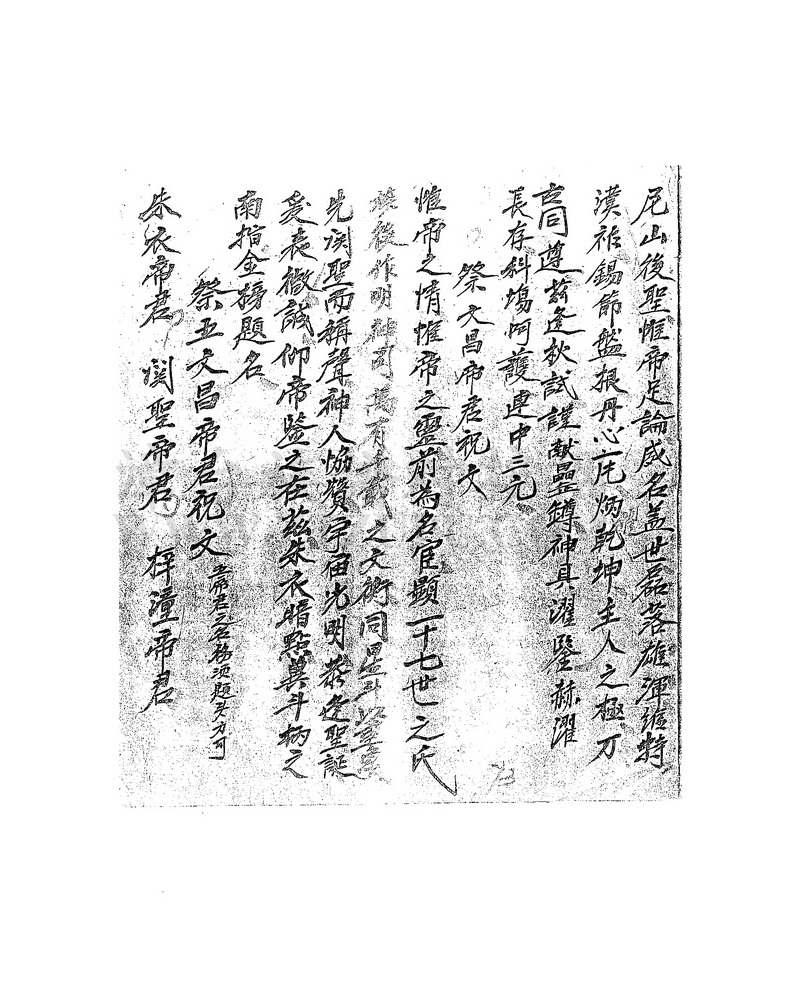 尼山後聖惟帝足論威名盖世磊落雄渾維持
漢祚錫節盤根丹心一片炳乾坤主人之極万
古同遵兹逢秋試謹献罍罇神具濯鑒赫濯
長存科塲呵護連中三元
祭文昌帝君祝文
惟帝之情惟帝之靈前為名宦顯一十七世之氏
後作明神司萬有千載之文衡同星斗
先関聖而稱聲神人恊賛宇宙光明恭逢聖誕
爰表微誠仰帝鑒之在兹朱衣暗點冀斗柄之
南指金榜題名
祭五文昌帝君祝文 五帝君之名務須題头方可
朱衣帝君 関聖帝君 梓潼帝君